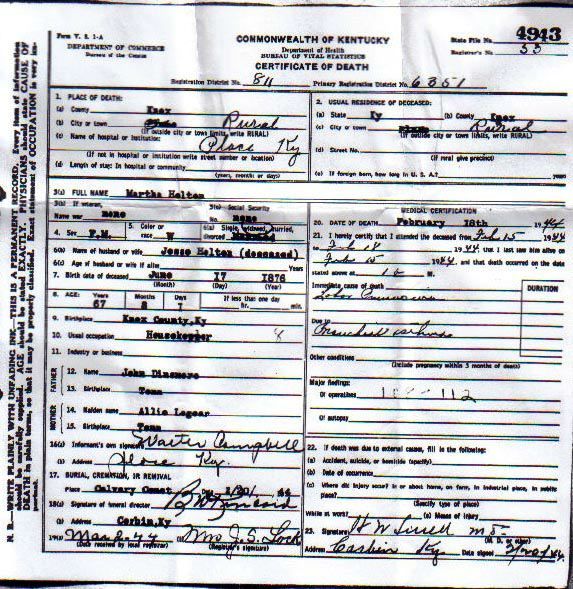 Form V. S. 1-A
DEPARTMENT OF COMMERCE
Bureau of the Census
COMMONWEALTH OF KENTUCKY
Department of Health
BUREAU OF VITAL STATISTICS
CERTIFICATE OF DEATH
State File No. 4943
Registrar's No. 53
Registration District No. 811 Primary Registration District No. 6351
1. PLACE OF DEATH:
(a) County Knox
(b) City or town Rural
(If outside city or town limits, write RURAL)
(c) Name of hospital or institution: Ky
(If not in hospital or institution write street number or location)
(d) Length of stay: In hospital or community
(years, months or days)
2. USUAL RESIDENCE OF DECEASED:
(a) State Ky (b) County Knox
(c) City or town Rural
(If outside city or town limits, write RURAL)
(d) Street No.
(If rural give precinct)
(e) If foreign born, how long in U. S. A.? years
3(a) FULL NAME Martha Helton
3(b) If veteran, Name war none
3(c) Social Security No. none
4. Sex F.M. 5. Color or race W 6(a) Single, widowed, married, divorced
6(b) Name of husband or wife Jesse Helton (deceased)
6(c) Age of husband or wife if alive Years
7. Birth date of deceased June 17 1876
(Month) (Day) (Year)
8. AGE: Years 67 Months Days If less than one day hr. min.
9. Birthplace Knox County, Ky
10. Usual occupation Housekeeper 8
11. Industry or business
FATHER
12. Name John Dinsmore
13. Birthplace Tenn
MOTHER
14. Maiden name Allie Legear
15. Birthplace Tenn
16(a) Informant's own signature Walter Campbell
(b) Address Ky.
17. BURIAL, CREMATION, OR REMOVAL
Place Calvary Cemet 44
18(a) Signature of funeral director
(b) Address Corbin, Ky
19(a) Mar 2-44 Mrs J. S. Lock
(Date received by local registrar) (Registrar's signature)
MEDICAL CERTIFICATION
20. DATE OF DEATH February 18th 1944
21. I hereby certify that I attended the deceased from Feb 15 1944
to Feb 18 1944 that I last saw him alive on
Feb 15 1944 and that death occurred on the date
stated above at M.
Immediate cause of death DURATION
Lobar
Due to
Other conditions
(Include pregnancy within 3 months of death)
Major findings:
Of operations
Of autopsy
22. If death was due to external causes, fill in the following:
(a) Accident, suicide, or homicide (specify)
(b) Date of occurrence
(c) Where did injury occur? In or about home, on farm, in industrial place, in public place?
(Specify type of place)
While at work? (e) Means of injury
23. Signature
(M. D. or other)
Address Corbin Ky Date signed
N. B.—WRITE PLAINLY WITH UNFADING INK—THIS IS A PERMANENT RECORD. Every item of information
should be carefully supplied. AGE should be stated EXACTLY. PHYSICIANS should state CAUSE OF
DEATH in plain terms, so that it may be properly classified. Exact statement of OCCUPATION is very important.